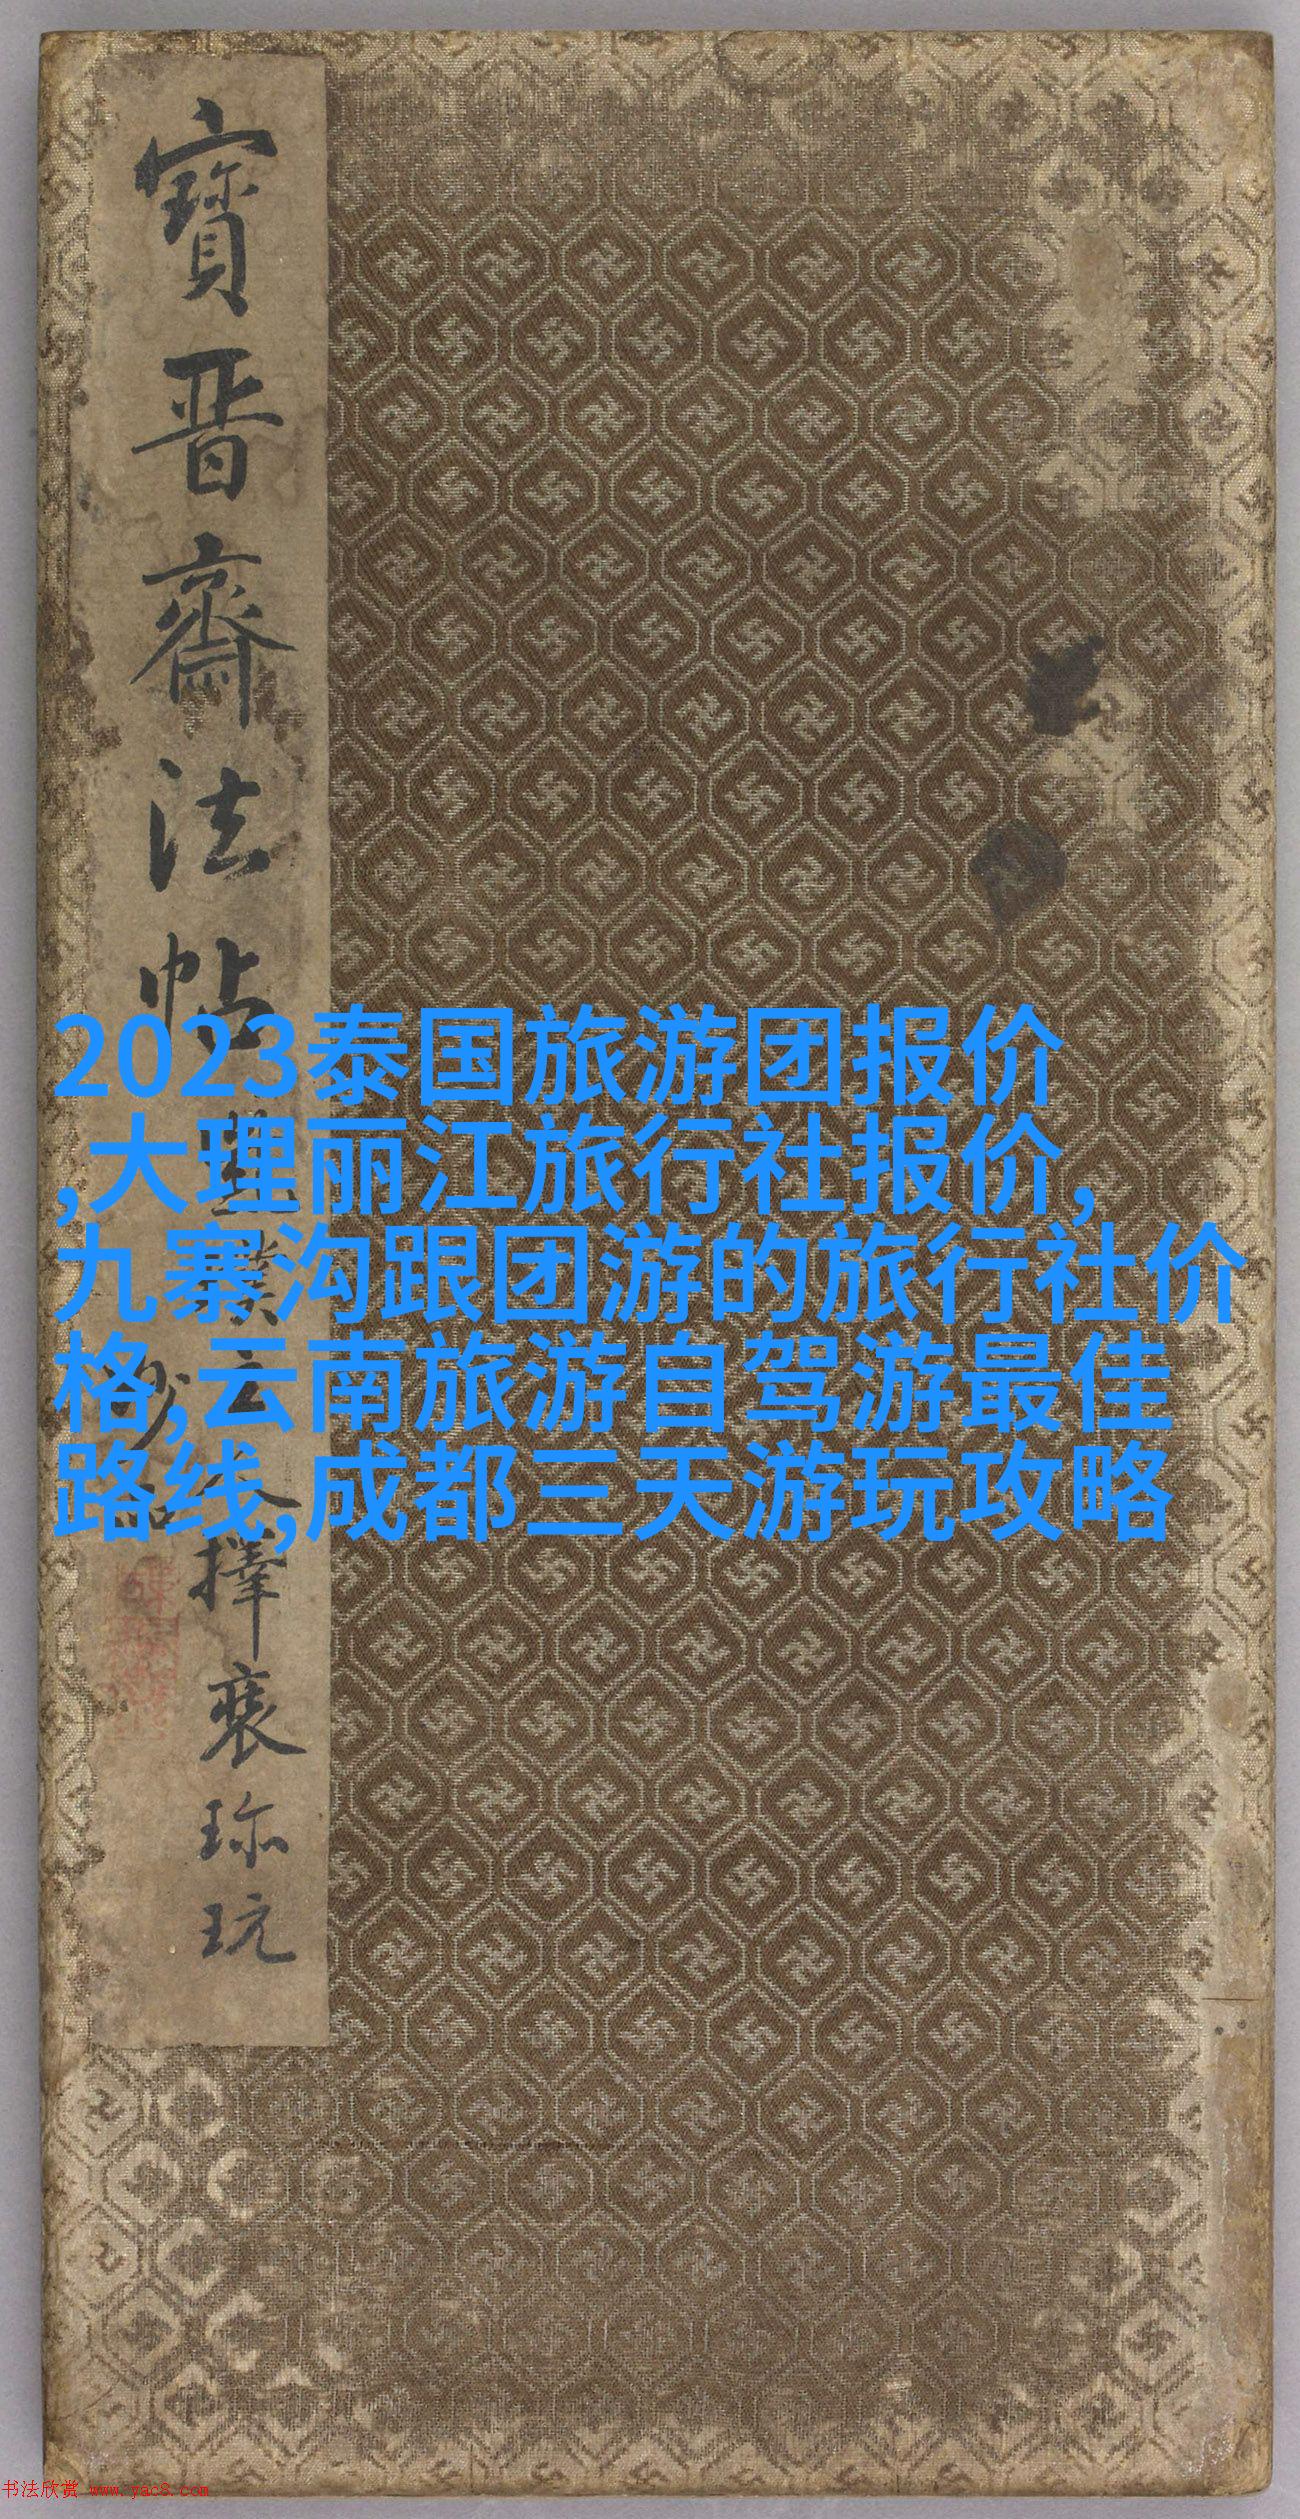 寶晉齋法帖
擇裘珎玩
2023泰国旅游团报价
,大理丽江旅行社报价,
九寨沟跟团游的旅行社价
格,云南旅游自驾游最佳
路线,成都三天游玩攻略
书法欣赏 www.yac8.com